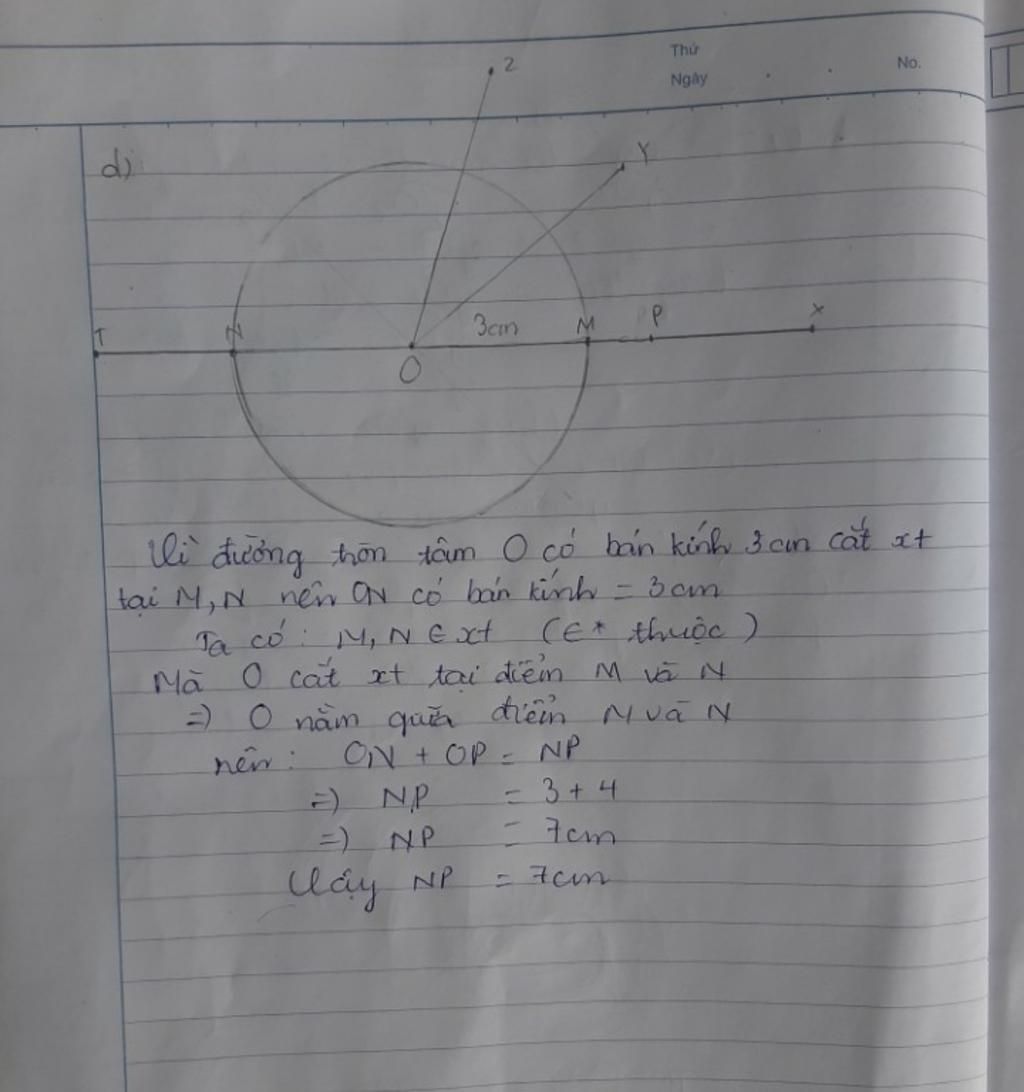 Thứ
Ngày
No.
d)
Z
Y
T N 3cm M P X
O
Vì đường tròn tâm O có bán kính 3cm cắt xt
tại M, N nên ON có bán kính = 3cm
Ta có: M, N ∈ xt (∈ * thuộc)
Mà O cắt xt tại điểm M và N
=) O nằm giữa điểm M và N
nên: ON + OP = NP
=) NP = 3 + 4
=) NP = 7cm
Vậy NP = 7cm